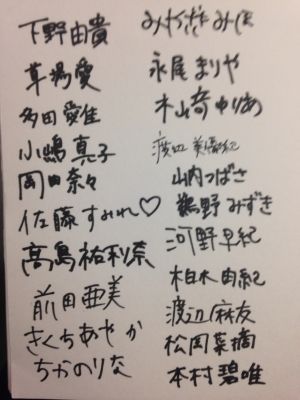 下野由貴
草場愛
多田愛佳
小嶋真子
岡田奈々
佐藤すみれ♡
高島祐利奈
前田亜美
きくちあやか
ちかのりな
みやざきみほ
永尾まりや
木﨑ゆりあ
渡辺美優紀
山内つばさ
鵜野みずき
河野早紀
柏木由紀
渡辺麻友
松岡菜摘
本村碧唯